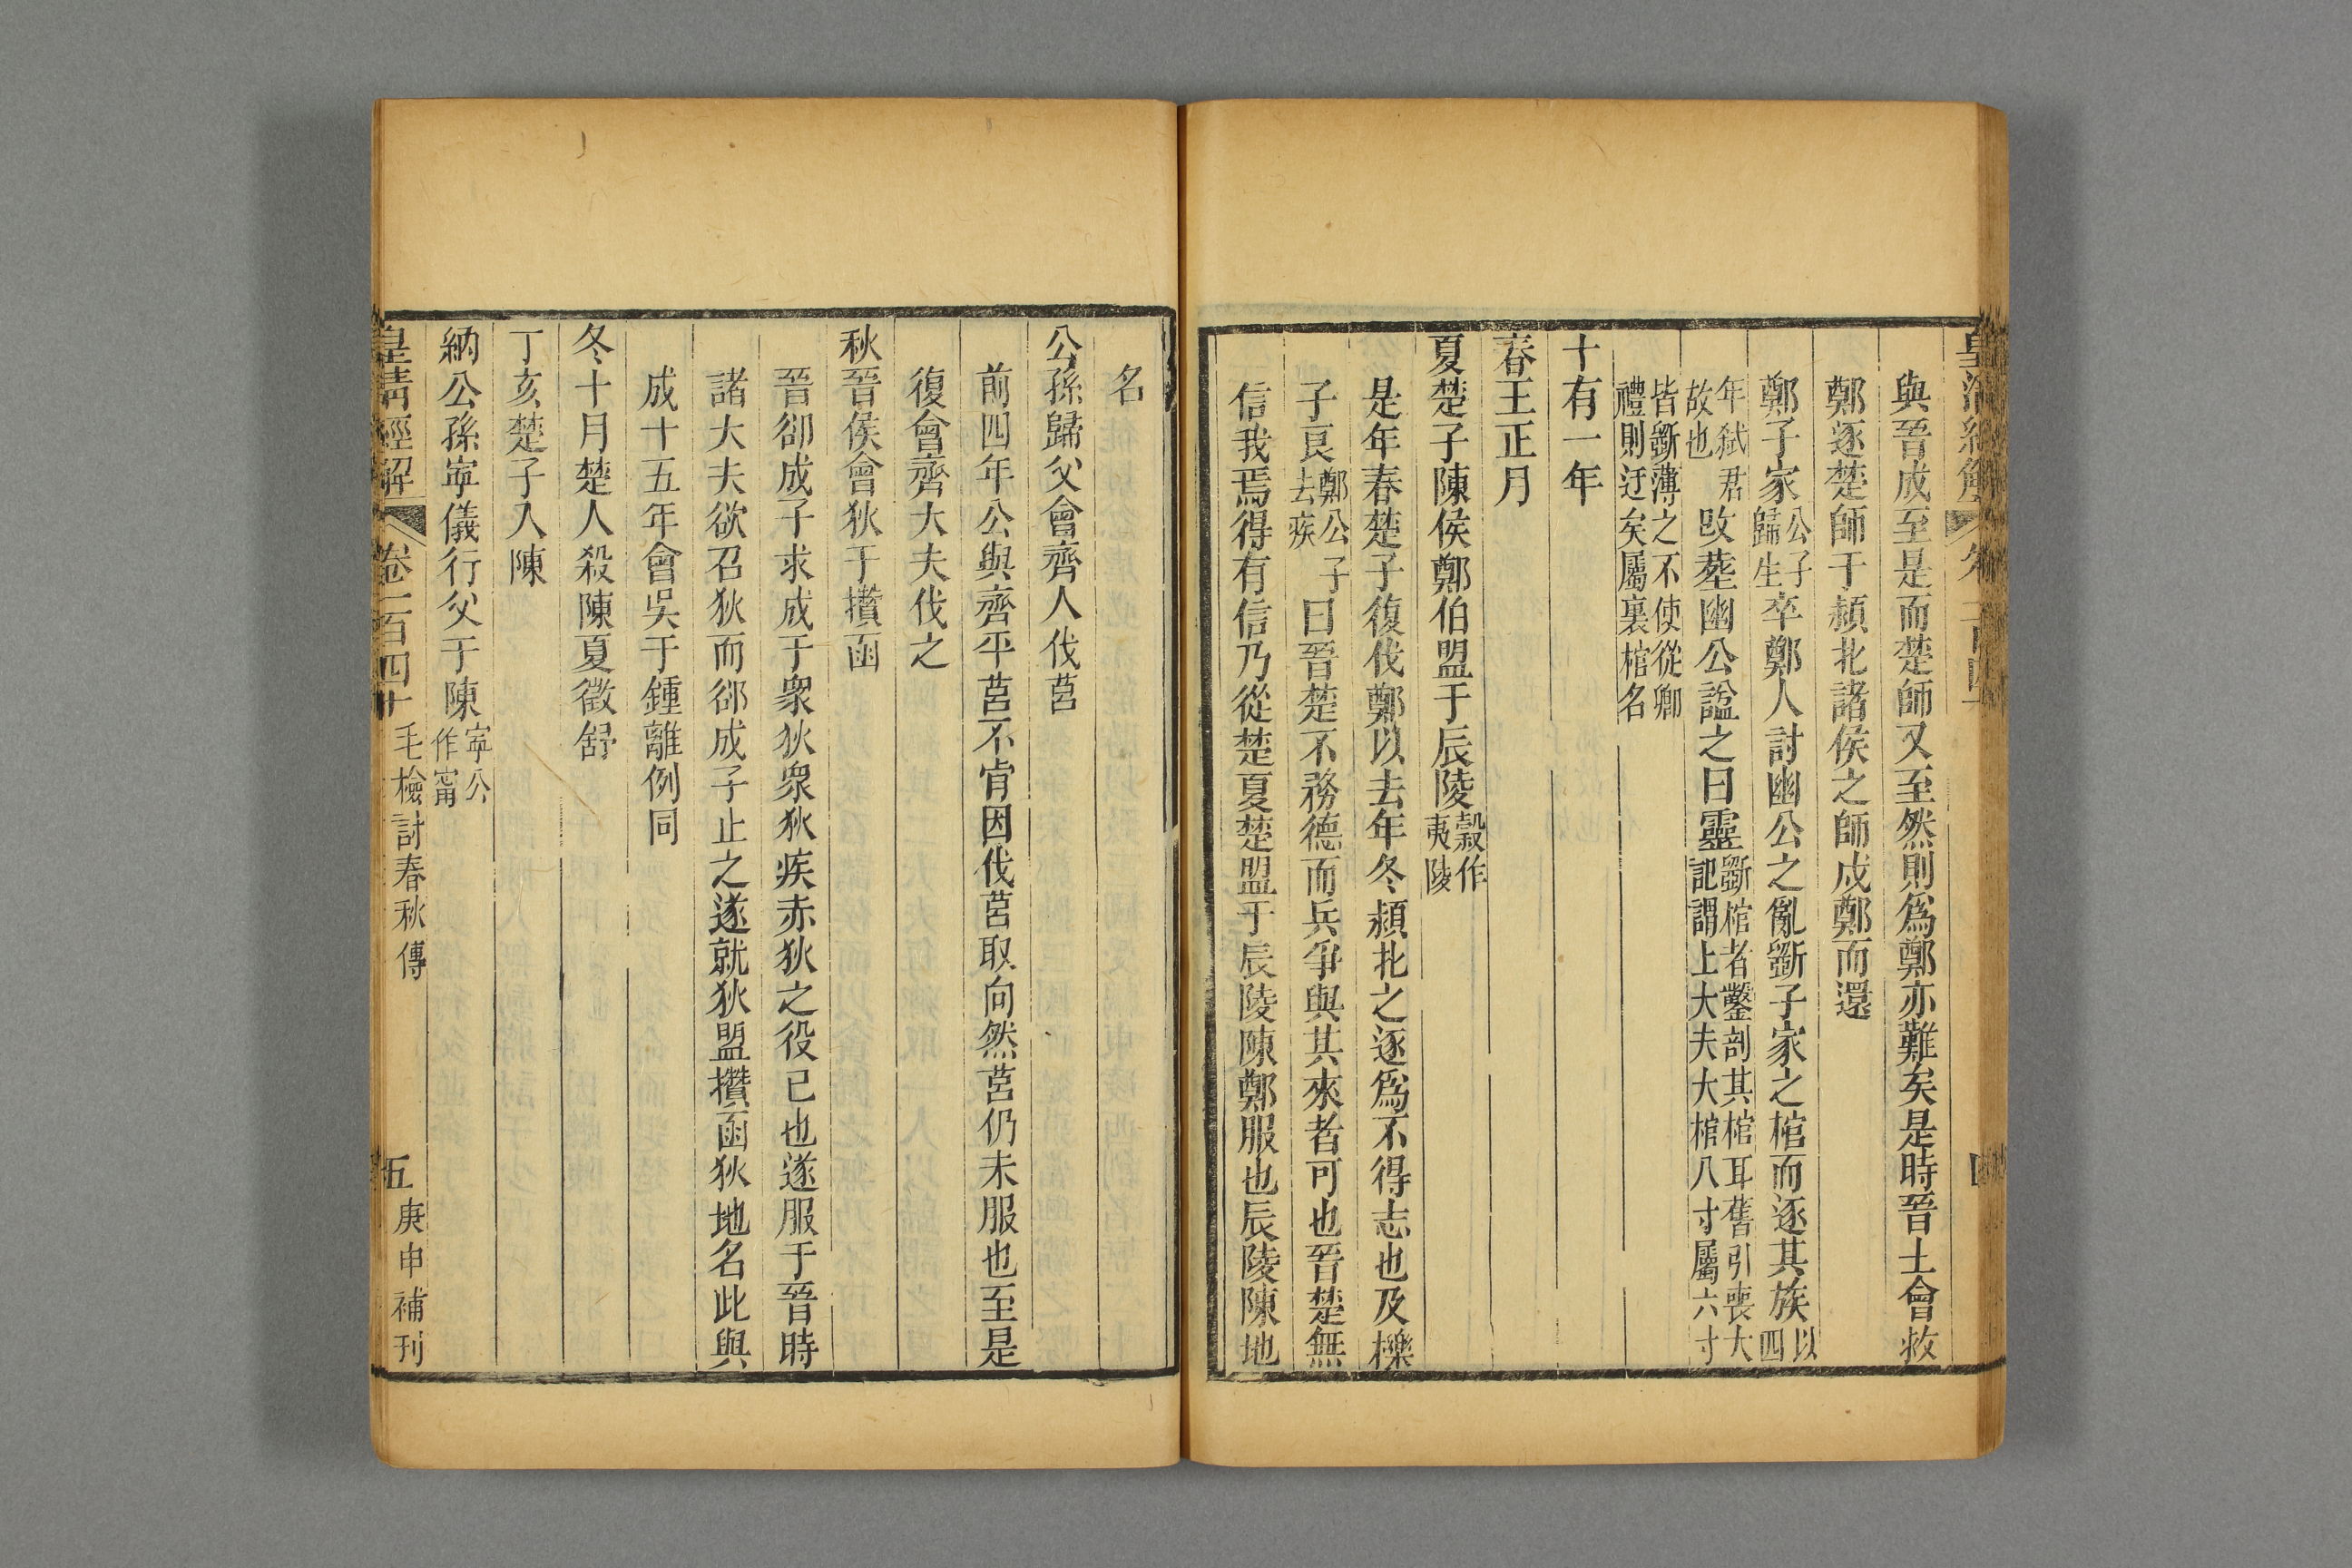 與晉成至是而楚師又至然則爲鄭亦難矣是時晉士會救
鄭逐楚師于潁北諸侯之師戍鄭而還
鄭子家公子歸生卒鄭人討幽公之亂斲子家之棺而逐其族以四
年弑君故也改葬幽公諡之曰靈斲棺者鑿剖其棺耳舊引喪大記謂上大夫大棺八寸屬六寸
皆斲薄之不使從卿禮則迂矣屬裏棺名
十有一年
春王正月
夏楚子陳侯鄭伯盟于辰陵榖作夷陵
是年春楚子復伐鄭以去年冬潁北之逐爲不得志也及櫟
子良鄭公子去疾曰晉楚不務德而兵爭與其來者可也晉楚無
信我焉得有信乃從楚夏楚盟于辰陵陳鄭服也辰陵陳地
名
公孫歸父會齊人伐莒
前四年公與齊平莒不肯因伐莒取向然莒仍未服也至是
復會齊大夫伐之
秋晉侯會狄于攢函
晉郤成子求成于衆狄衆狄疾赤狄之役已也遂服于晉時
諸大夫欲召狄而郤成子止之遂就狄盟攢函狄地名此與
成十五年會吳于鍾離例同
冬十月楚人殺陳夏徵舒
丁亥楚子入陳
納公孫寍儀行父于陳寍公作甯
皇清經解 卷一百四十 毛檢討春秋傳 五 庚申補刊